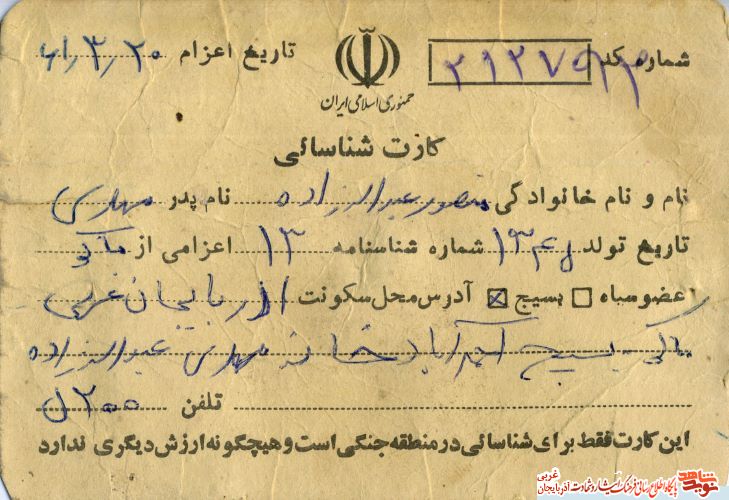 شماره کد تاریخ اعزام ۶۱/۳/۲۰
جمهوری اسلامی ایران
کارت شناسائی
نام و نام خانوادگی منصور عبدالرزاده نام پدر مهدی
تاریخ تولد شماره شناسنامه ۱۳ اعزامی از ماکو
عضو سپاه بسیج آدرس محل سکونت آذربایجان غربی
ماکو بسیج خانه مهدی
تلفن
این کارت فقط برای شناسائی در منطقه جنگی است و هیچگونه ارزش دیگری ندارد
نوید شاهد پایگاه اطلاع رسانی فرهنگ ایثار و شهادت آذربایجان غربی